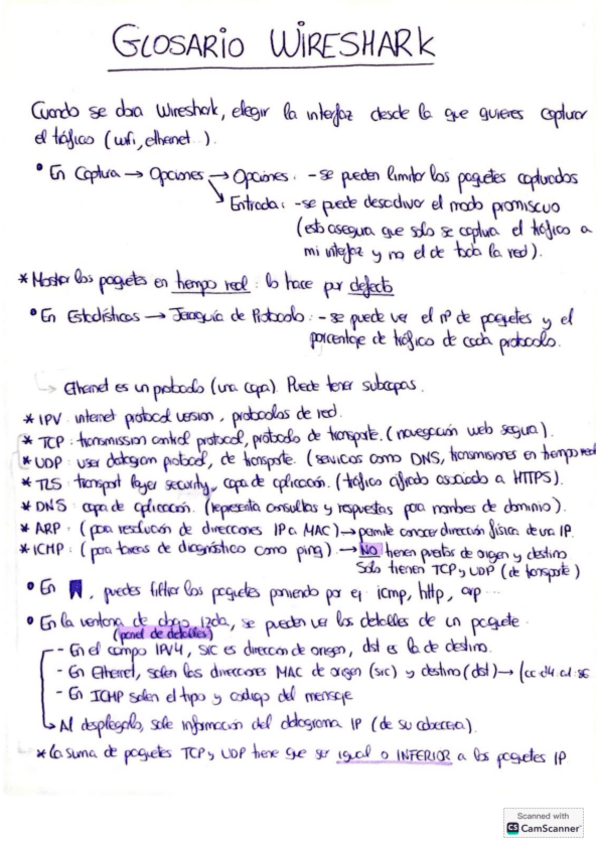 GLOSARIO WIRESHARK
Cuando se abra Wireshark, elegir la interfaz desde la que quieres capturar
el tráfico (wifi, ethernet..).
• En Captura → Opciones → Opciones: - se pueden limitar los paquetes capturados
↘ Entrada: - se puede desactivar el modo promiscuo
(esto asegura que solo se captura el tráfico a
mi interfaz y no el de toda la red).
* Mostrar los paquetes en tiempo real: lo hace por defecto
• En Estadísticas → Jerarquía de Protocolo: - se puede ver el nº de paquetes y el
porcentaje de tráfico de cada protocolo.
↳ Ethernet es un protocolo (una capa). Puede tener subcapas.
* IPV: internet protocol version, protocolos de red.
* TCP: transmission control protocol, protocolo de transporte. (navegación web segura).
* UDP: user datagram protocol, de transporte. (servicios como DNS, transmisiones en tiempo real
* TLS: transport layer security, capa de aplicación. (tráfico cifrado asociado a HTTPS).
* DNS: capa de aplicación. (representa consultas y respuestas para nombres de dominio).
* ARP: (para resolución de direcciones IP a MAC) → permite conocer dirección física de una IP.
* ICMP: (para tareas de diagnóstico como ping) → NO tienen puertos de origen y destino
Solo tienen TCP y UDP (de transporte)
• En , puedes filtrar los paquetes poniendo por ej: icmp, http, arp ...
• En la ventana de abajo izda, se pueden ver los detalles de un paquete.
(panel de detalles)
- En el campo IPV4, src es dirección de origen, dst es la de destino.
- En Ethernet, salen las direcciones MAC de origen (src) y destino (dst) →
- En ICMP salen el tipo y codigo del mensaje
↳ Al desplegarlo, sale información del datagrama IP (de su cabecera).
* La suma de paquetes TCP y UDP tiene que ser igual o INFERIOR a los paquetes IP
Scanned with
CS CamScanner